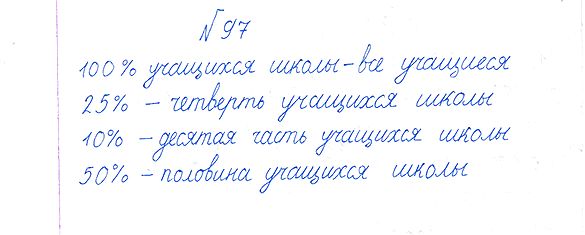 № 97
100% учащихся школы - все учащиеся
25% - четверть учащихся школы
10% - десятая часть учащихся школы
50% - половина учащихся школы